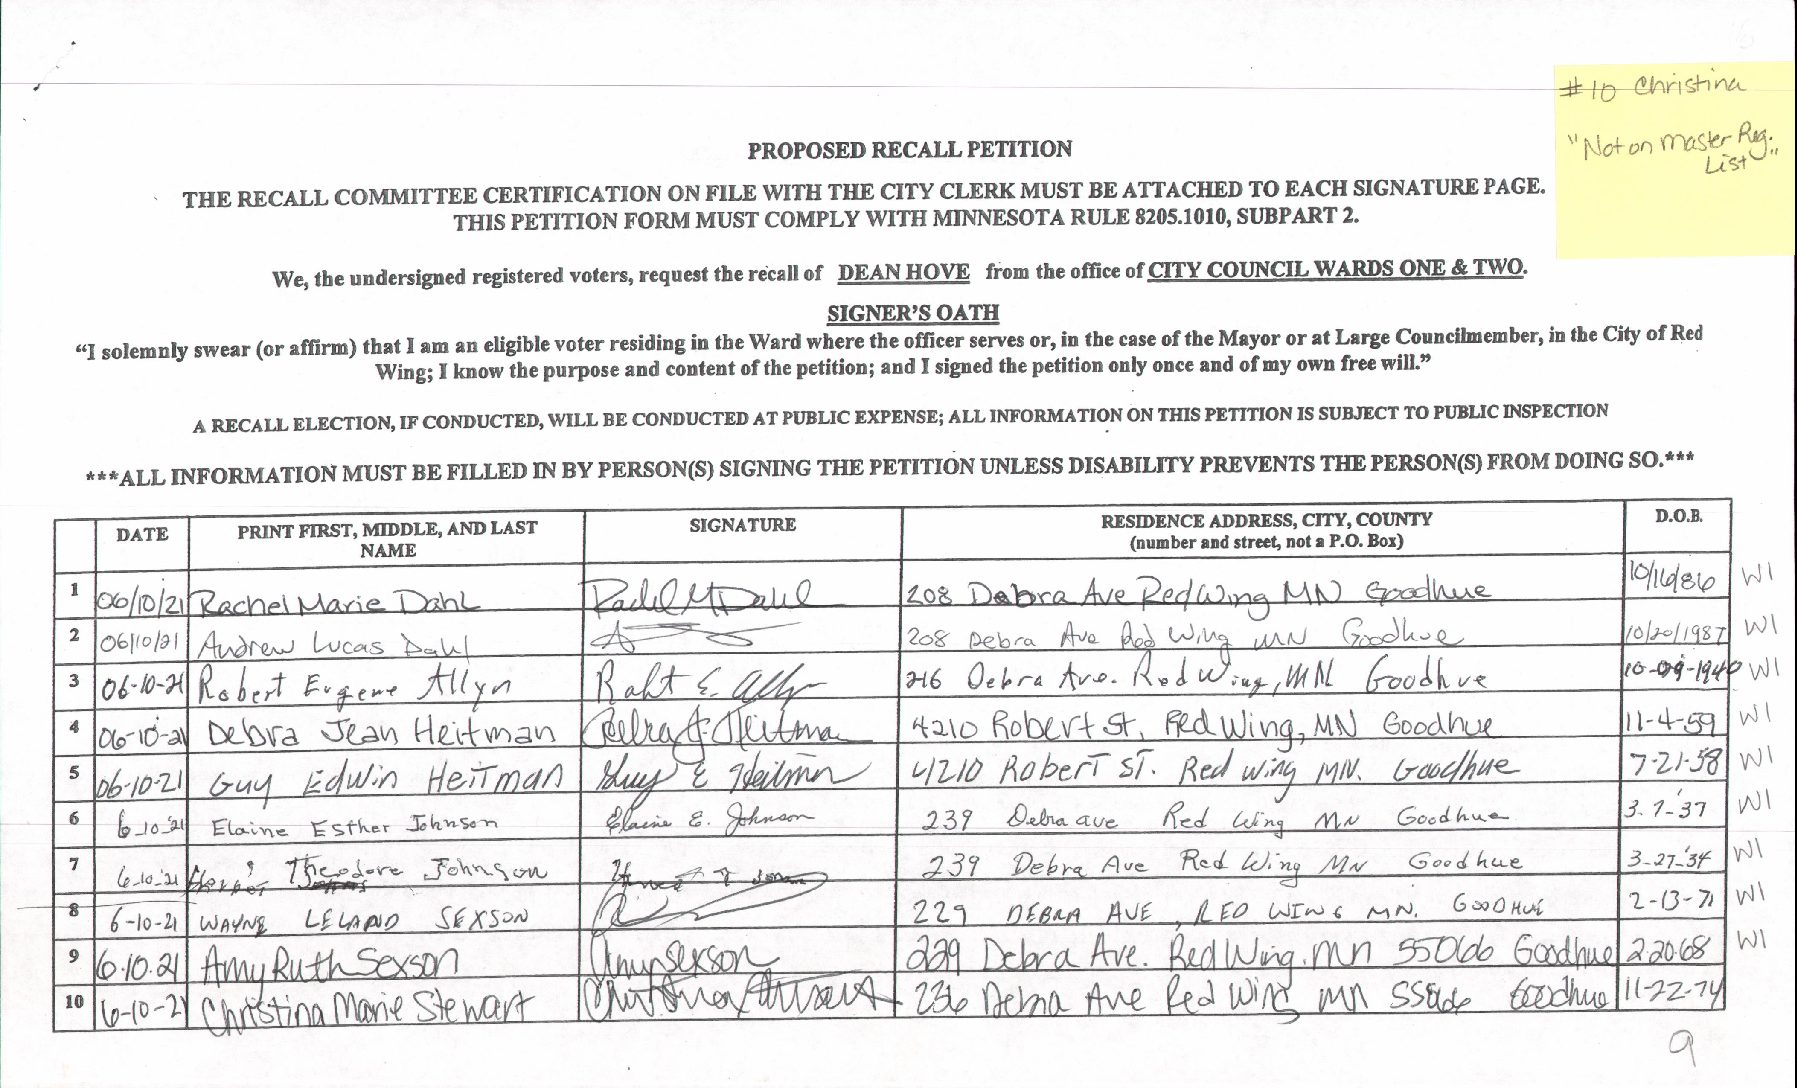 #10 Christina
"Not on Master Reg. List"
PROPOSED RECALL PETITION
THE RECALL COMMITTEE CERTIFICATION ON FILE WITH THE CITY CLERK MUST BE ATTACHED TO EACH SIGNATURE PAGE.
THIS PETITION FORM MUST COMPLY WITH MINNESOTA RULE 8205.1010, SUBPART 2.
We, the undersigned registered voters, request the recall of DEAN HOVE from the office of CITY COUNCIL WARDS ONE & TWO.
SIGNER'S OATH
"I solemnly swear (or affirm) that I am an eligible voter residing in the Ward where the officer serves or, in the case of the Mayor or at Large Councilmember, in the City of Red
Wing; I know the purpose and content of the petition; and I signed the petition only once and of my own free will."
A RECALL ELECTION, IF CONDUCTED, WILL BE CONDUCTED AT PUBLIC EXPENSE; ALL INFORMATION ON THIS PETITION IS SUBJECT TO PUBLIC INSPECTION
***ALL INFORMATION MUST BE FILLED IN BY PERSON(S) SIGNING THE PETITION UNLESS DISABILITY PREVENTS THE PERSON(S) FROM DOING SO.***
DATE PRINT FIRST, MIDDLE, AND LAST NAME SIGNATURE RESIDENCE ADDRESS, CITY, COUNTY (number and street, not a P.O. Box) D.O.B.
1 06/10/21 Rachel Marie Dahl Rachel M Dahl 208 Debra Ave Red Wing MN Goodhue 10/16/86 W1
2 06/10/21 Andrew Lucas Dahl 208 Debra Ave Red Wing MN Goodhue 10/20/1987 W1
3 06-10-21 Robert Eugene Allyn Robt E. Allyn 216 Debra Ave. Red Wing, MN Goodhue 10-09-1940 W1
4 06-10-21 Debra Jean Heitman Debra J. Heitman 4210 Robert St, Red Wing, MN Goodhue 11-4-59 W1
5 06-10-21 Guy Edwin Heitman Guy E Heitman 4210 Robert ST. Red Wing MN. Goodhue 7-21-58 W1
6 6-10-'21 Elaine Esther Johnson Elaine E. Johnson 239 Debra ave Red Wing MN Goodhue 3-7-'37 W1
7 6-10-'21 Theodore Johnson 239 Debra Ave Red Wing MN Goodhue 3-27-'34 W1
8 6-10-21 WAYNE LELAND SEXSON 229 DEBRA AVE, RED WING MN. GOODHUE 2-13-71 W1
9 6.10.21 Amy Ruth Sexson Amy Sexson 229 Debra Ave. Red Wing, MN 55066 Goodhue 2.20.68 W1
10 6-10-21 Christina Marie Stewart Christina Stewart 236 Debra Ave Red Wing MN 55066 Goodhue 11-22-74
9